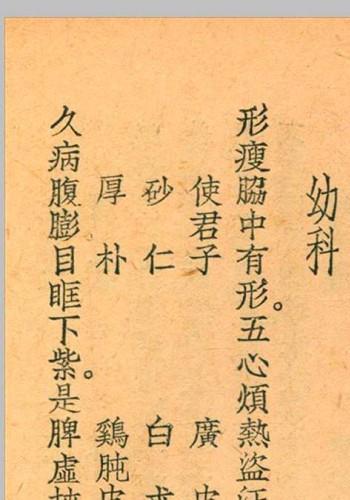 幼科
形瘦脇中有形。五心煩熱盜
使君子 廣
砂仁 白
厚朴 鷄肫
久病腹膨目眶下紫。是脾虛